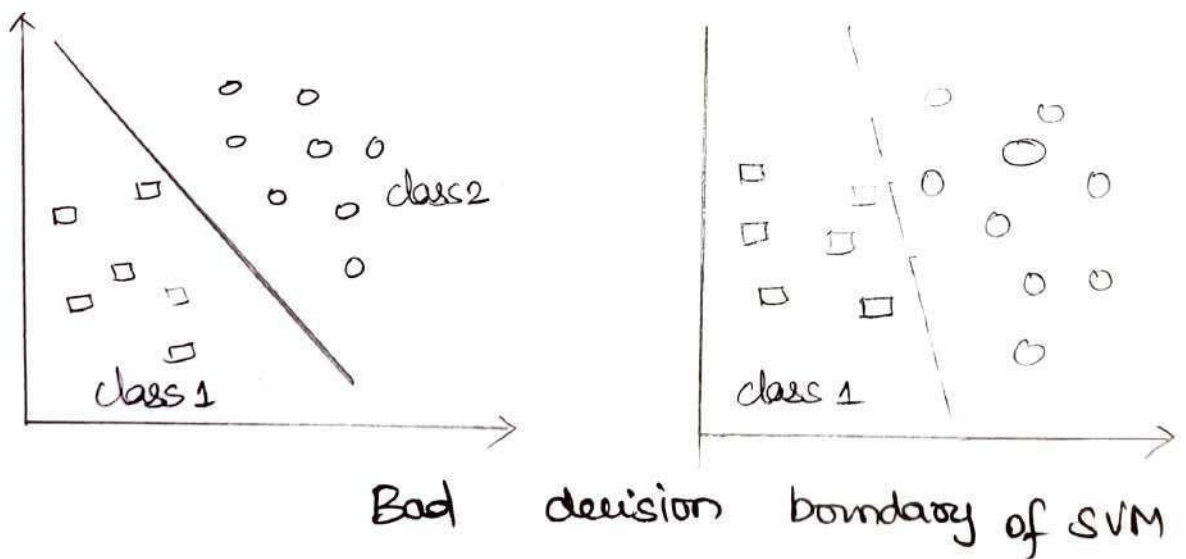 class 2
class 1
class 1
Bad decision boundary of SVM